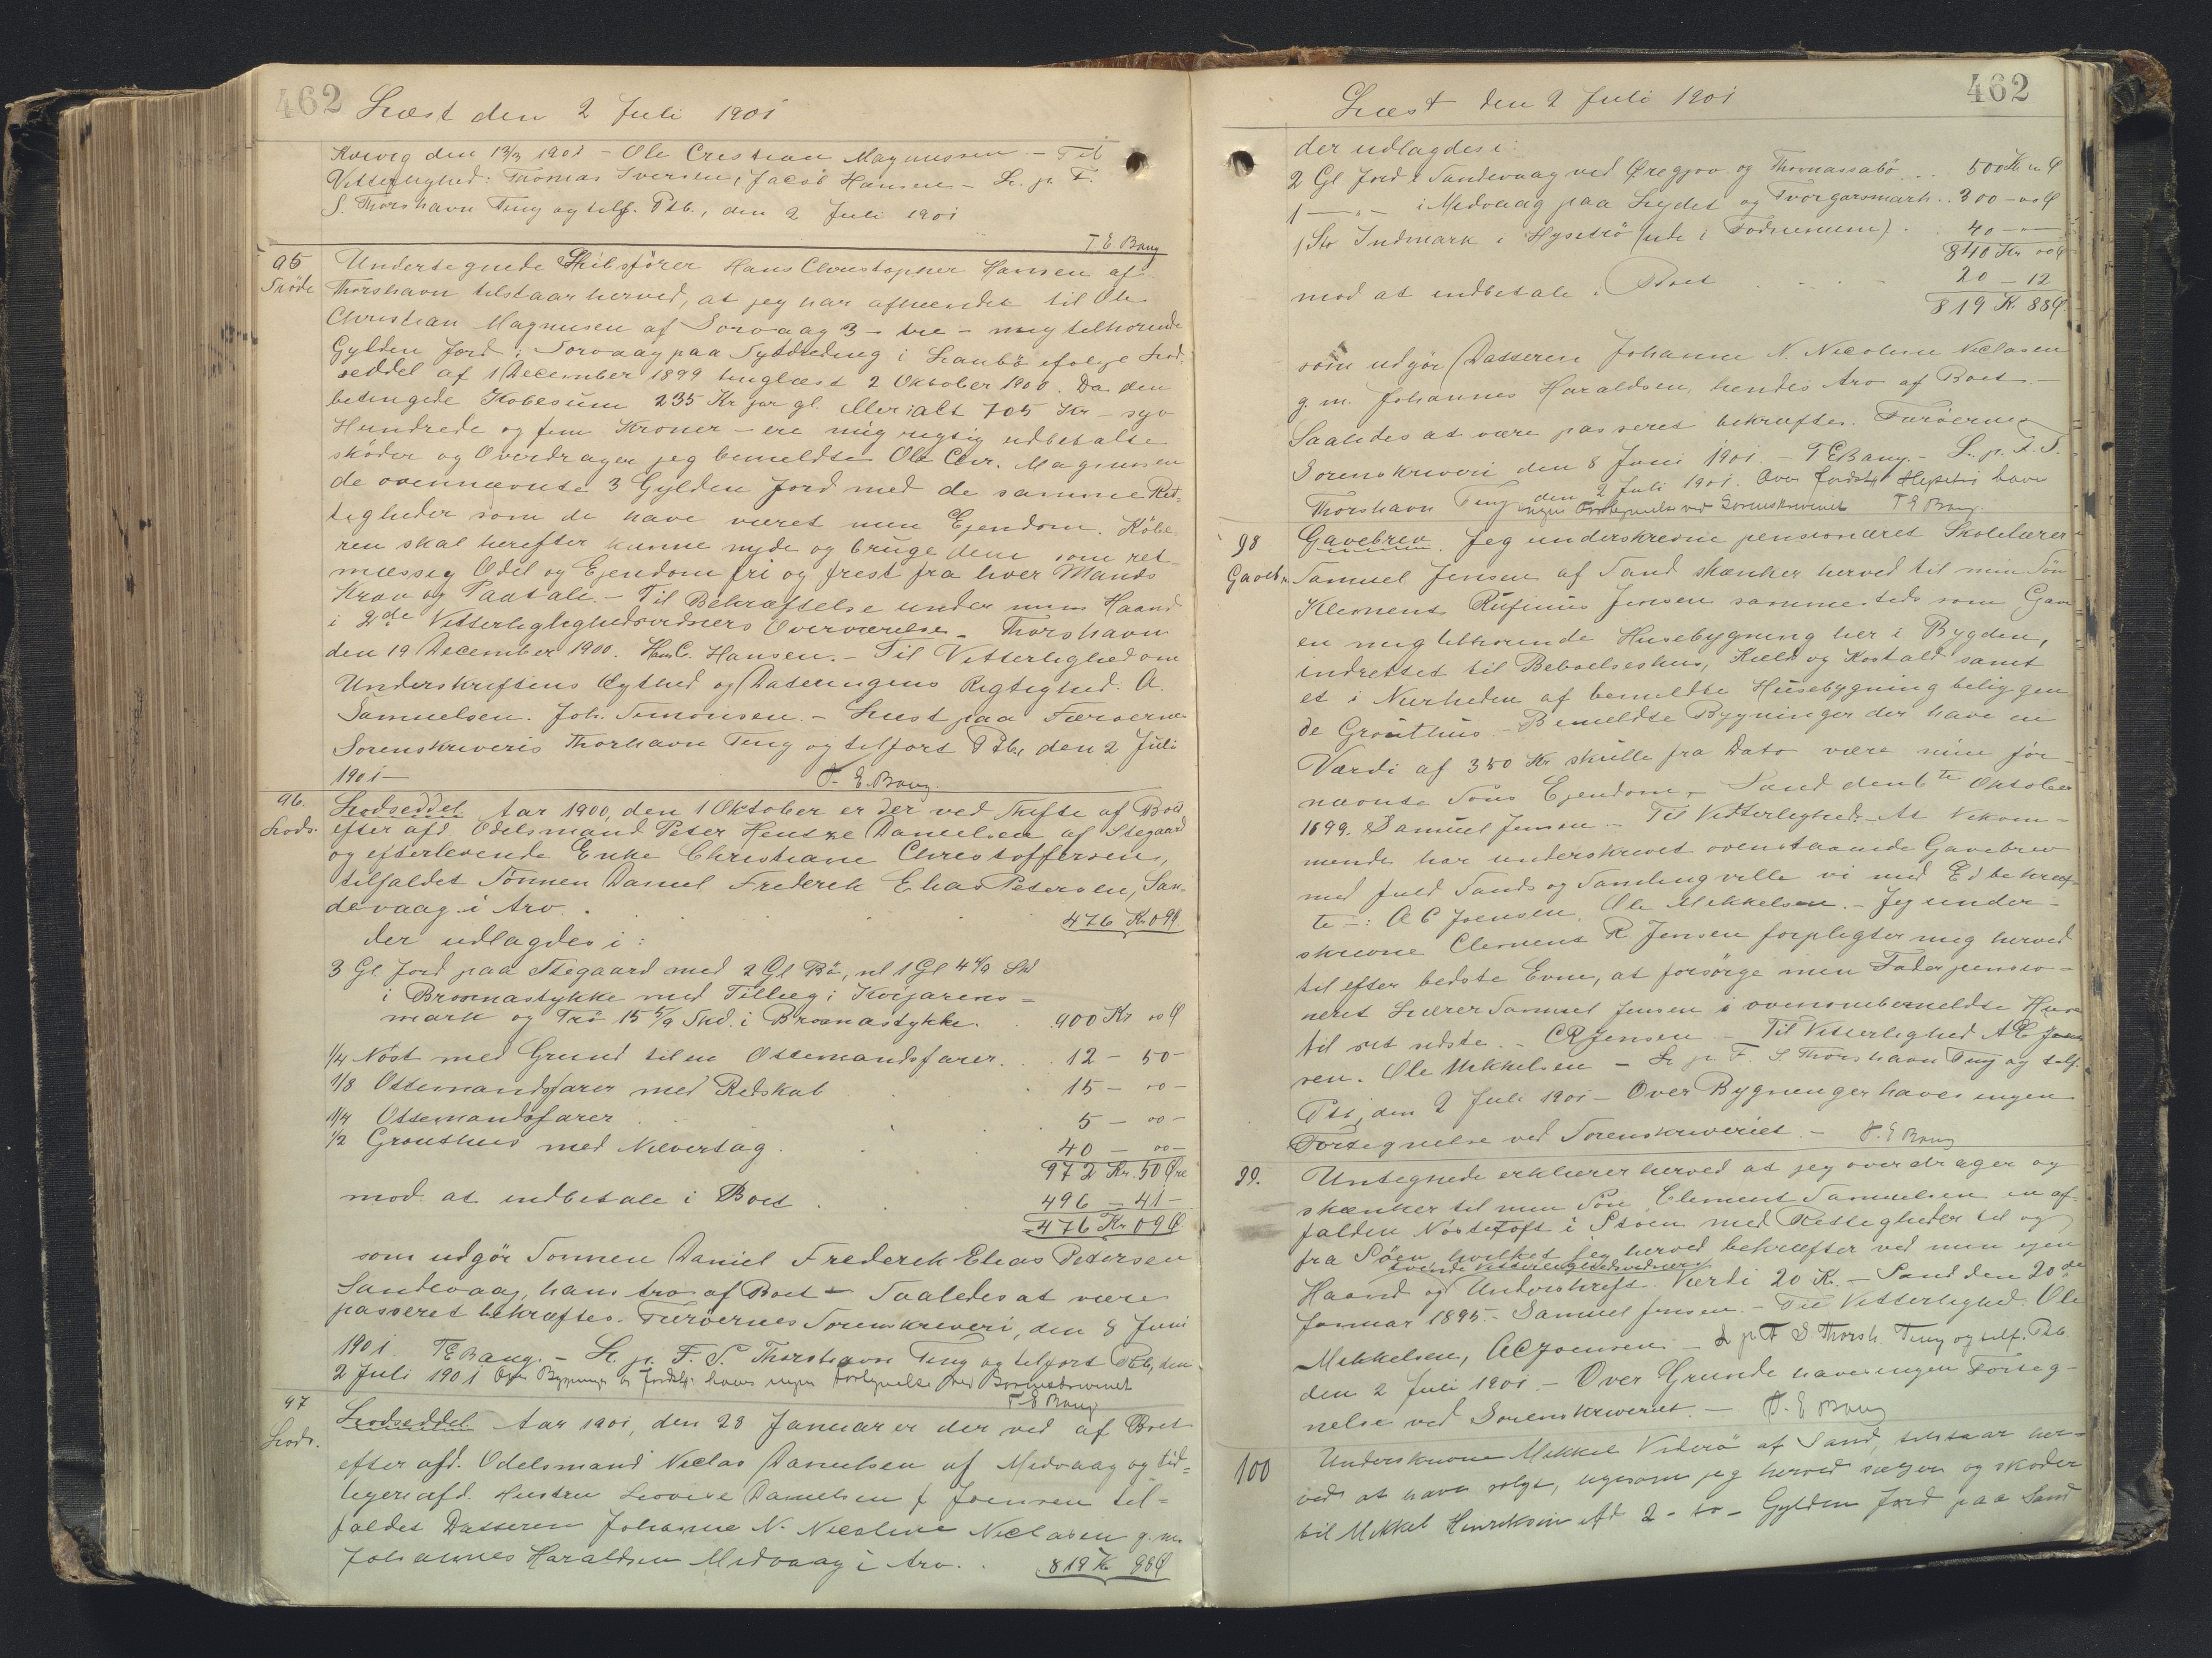 462 Læst den 2 Juli 1901
den 13/3 1901 - Ole Cristian Magnussen - Til
Vitterlighed: Thomas Iversen, Jacob Hansen - L. p. F.
S. Thorshavn Ting og tilf. Ptb., den 2 Juli 1901
T E Bang
95 Undertegnede Skibsfører Hans Christopher Hansen af
Skøde Thorshavn tilstaar herved, at jeg har afhændet til Ole
Christian Magnusen af Sorvaag 3 - tre - mig tilhørende
Gylden Jord i Sorvaag paa i ifølge Lod-
seddel af 1 December 1899 tinglæst 2 Oktober 1900. Da den
betingede Købesum 235 Kr pr gl. eller ialt 705 Kr - syv
Hundrede og fem Kroner - ere mig rigtig udbetalte
skøder og Overdrager jeg bemeldte Ole Chr. Magnussen
de ovennævnte 3 Gylden Jord med de samme Ret-
tigheder som de have været min Ejendom. Købe-
ren skal herefter kunne nyde og bruge dem som ret-
mæssig Odel og Ejendom fri og frest fra hver Mands
Krav og Paatale. - Til Bekræftelse under min Haand
i 2de Vitterlighedsvidners Overværelse - Thorshavn
den 19 December 1900. Hans C. Hansen. - Til Vitterlighed om
Underskriftens Ægthed og Dateringens Rigtighed. A.
Samuelsen. Joh. Simonsen. - Læst paa Færøernes
Sorenskriveris Thorhavn Ting og tilført Ptb. den 2 Juli
1901 - T. E. Bang.
96. Lodseddel Aar 1900, den 1 Oktober er der ved Skifte af Boet
Lods. efter afd. Odelsmand Peter Hentze Danielsen af Stegaard
og efterlevende Enke Christiane Christoffersen,
tilfaldet Sønnen Daniel Frederik Elias Petersen, San-
devaag i Arv. 476 Kr. 09 Ø
der udlagdes i:
3 Gl Jord paa Stegaard med 2 Gl Bø, nl 1 Gl 4 4/9 Sk
i Brosnastykke med Tillæg i
mark og Trø 15 5/9 Sk. i Brosnastykke. 900 Kr oo Ø
1/4 Nøst med Grund til en Ottemandsfarer. 12 - 50 -
1/8 Ottemandsfarer med Redskab 15 - oo -
1/4 Ottemandsfarer 5 - oo -
1/2 Grouthus med Nævertag. 40 - oo -
972 Kr. 50 Øre
mod at indbetale i Boet 496 - 41 -
476 Kr 09 Ø
som udgør Sønnen Daniel Frederik Elias Pedersen
Sandevaag, hans Arv af Boet - Saaledes at være
passeret bekræftes. Færøernes Sorenskriveri, den 8 Juni
1901. T E Bang. - L. p. F. S. Thorshavn Ting og tilført Ptb, den
2 Juli 1901 Over Bygninger og Jordst. haves ingen Fortegnelse ved Sorenskriveriet
T E Bang
97 Lodseddel Aar 1901, den 28 Januar er der ved af Boet
Lods. efter afd. Odelsmand Niclas Danielsen af Midvaag og tid-
ligere afd. Hustru Lovise Danielsen f. Joensen til-
faldet Datteren Johanne N. Nicoline Niclasen g. m.
Johannes Haraldsen Midvaag i Arv. 819 Kr 88 Ø
Læst den 2 Juli 1901 462
der udlagdes i:
2 Gl Jord i Sandevaag ved Øregjov og Thomassabø 500 Kr oo Ø
1 - " - i Midvaag paa Lydet og Tvorgarsmark .. 300 - oo Ø
1 Stk Indmark i (ude i ) . 40 - -
840 Kr oo Ø
mod at indbetale i Boet 20 - 12
819 K. 88 Ø
som udgør Datteren Johanne N. Nicoline Niclasen
g. m. Johannes Haraldsen, hendes Arv af Boet. -
Saaledes at være passeret bekræftes. Færøernes
Sorenskriveri den 8 Juni 1901. - T E Bang. - L. p. F. S.
Thorshavn Ting den 2 Juli 1901. Over Jordst. haves
ingen Fortegnelse ved Sorenskriveriet T E Bang.
98 Gavebrev. Jeg underskrevne pensioneret Skolelærer
Gaveb. Samuel Jensen af Sand skænker herved til min Søn
Klemens Rufinus Jensen sammesteds som Gave
en mig tilhørende Husebygning her i Bygden,
indrettet til Beboelseshus, Kæld og Kostald samt
et i Nærheden af bemeldte Husebygning beliggen-
de Grouthus. - Bemeldte Bygninger der have en
Værdi af 350 Kr skulle fra Dato være min før-
nævnte Søns Ejendom. - Sand den 6te Oktober
1899. Samuel Jensen. - Til Vitterlighed. At Vekom-
mende har underskrevet ovenstaaende Gavebrev
med fuld Sands og Samling ville vi med Ed bekræf-
te -: A C Joensen, Ole Mikkelsen. - Jeg under-
skrevne Clemens R. Jensen forpligter mig herved
til efter bedste Evne, at forsørge min Fader pensio-
neret Lærer Samuel Jensen i ovenommeldte Huse
til sit sidste. - C R Jensen - Til Vitterlighed A C Joen-
sen. Ole Mikkelsen - L. p. F. S Thorshavn Ting og tilf.
Ptb, den 2 Juli 1901 - Over Bygninger haves ingen
Fortegnelse ved Sorenskriveriet. - T. E Bang
99. Untegnede erklærer herved at jeg overdrager og
skænker til min Søn Clement Samuelsen en af-
falden Nøstetoft i Støen med Rettigheder til og
fra Søen, hvilket jeg herved bekræfter ved min egen
tvende Vitterlighedsvidner
Haand og Underskrift. Værdi 20 K. - Sand den 20de
Januar 1895. - Samuel Jensen. - Til Vitterlighed: Ole
Mikkelsen, A C Joensen - L p F S Thorsh. Ting og tilf. Ptb.
den 2 Juli 1901. - Over Grunde haves ingen Forteg-
nelse ved Sorenskriveriet. - T. E Bang
100 Underskrevne Mikkel Viderø af Sand, tilstaar her-
ved at have solgt, ligesom jeg herved sælger og skøder
til Mikkel Henriksen ibd 2 - to - Gylden Jord paa Sand